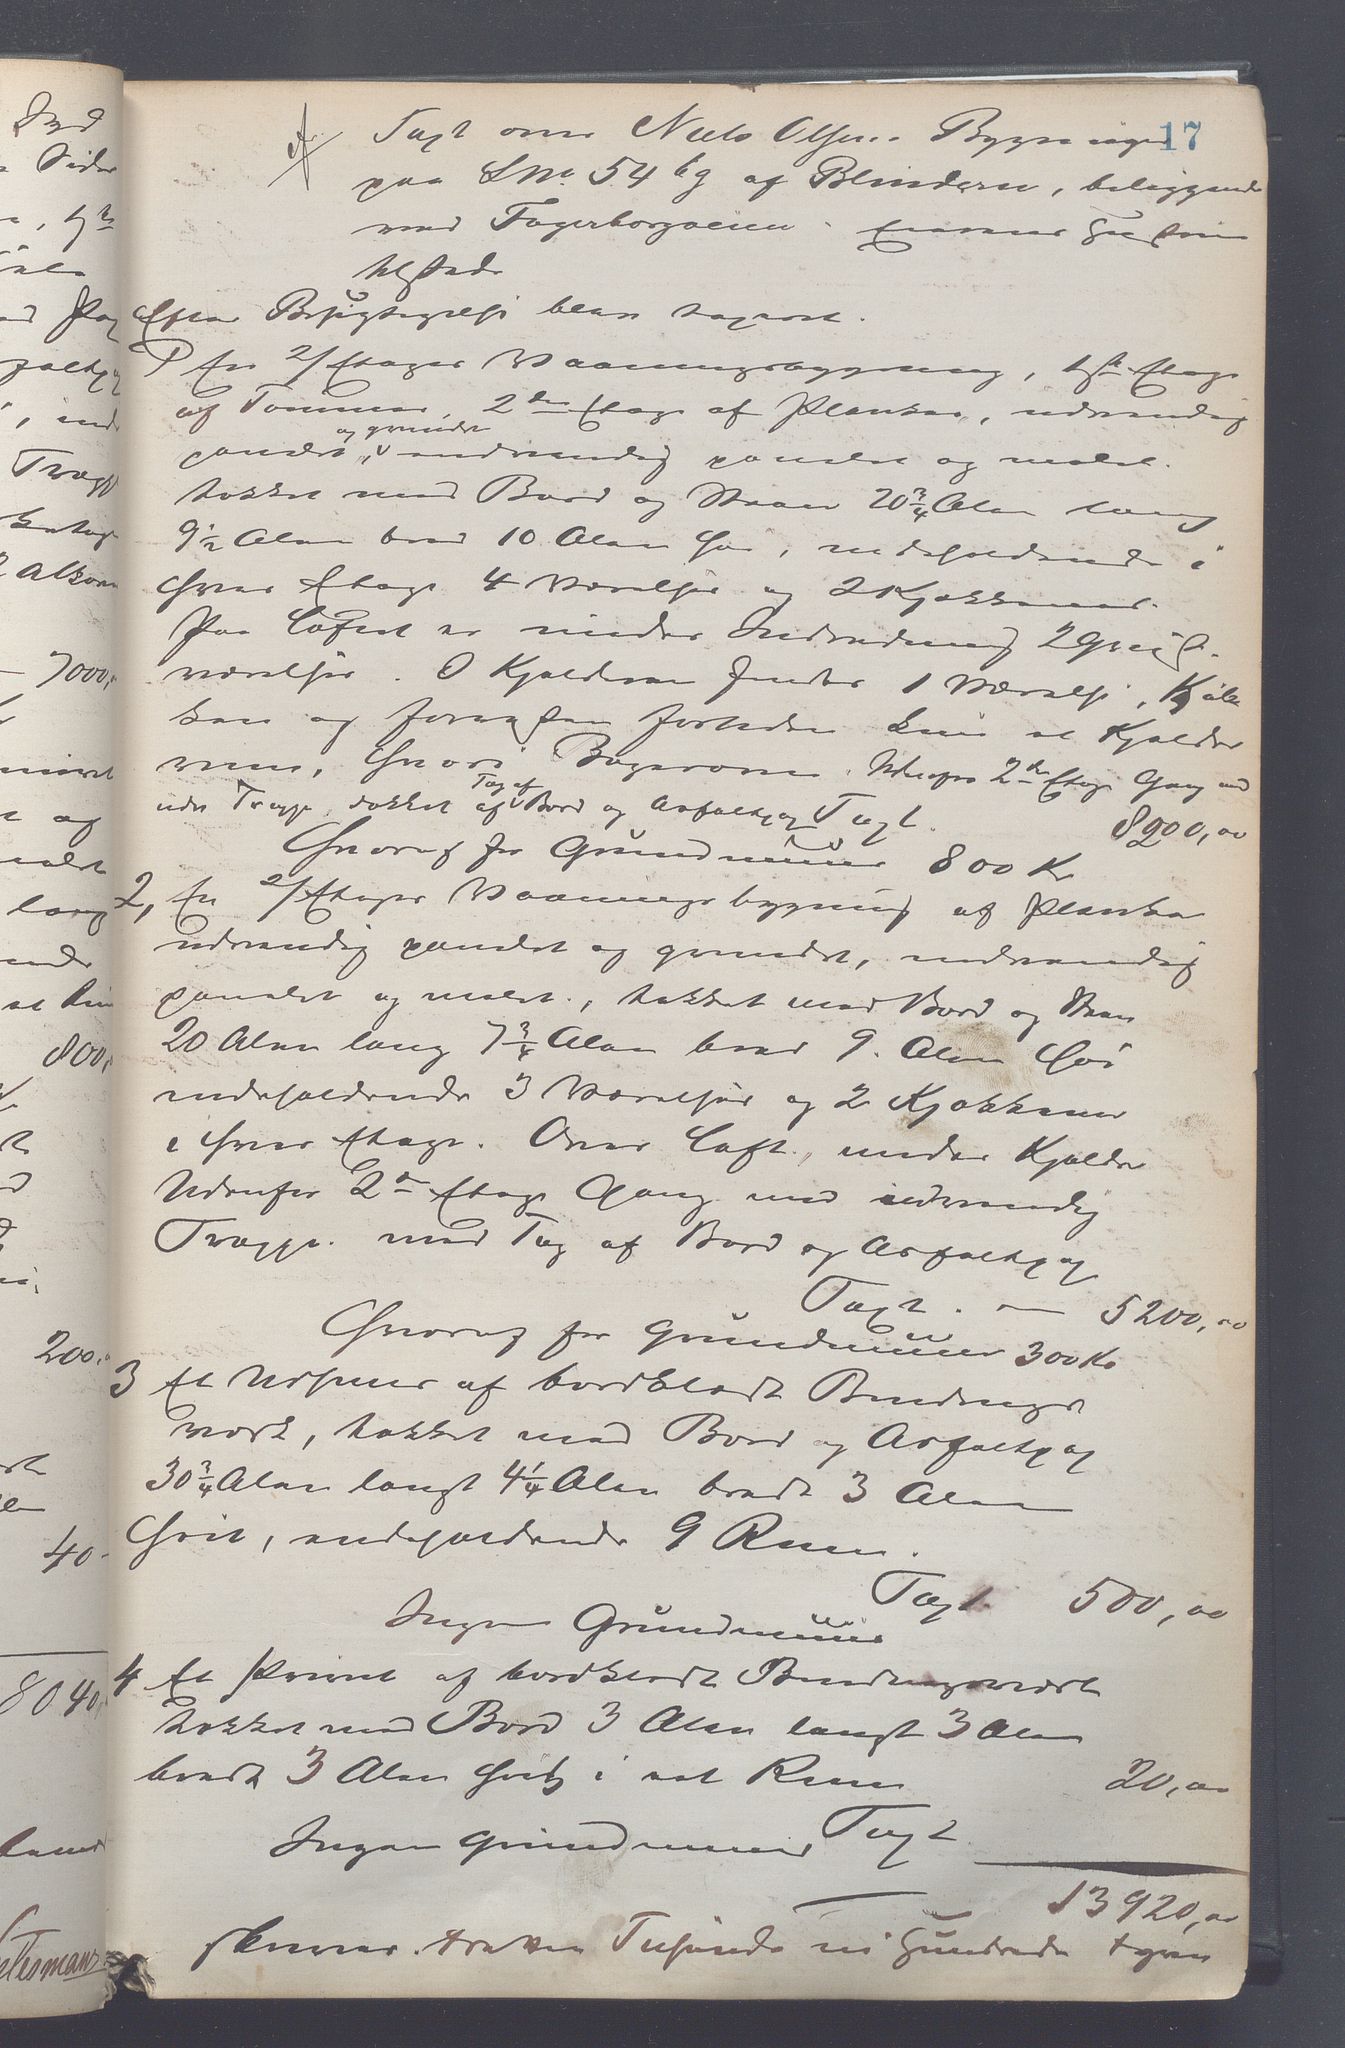 17
Taxt over Niels Olsens Bygninger
paa L.No. 54 bg af Blindern, beliggende
ved Fagerborgveien.
tilstede
Efter Besigtigelse blev taxeret.
1) En 2/Etages Vaaningsbygning, 1ste Etage
af Tømmer, 2den Etage af Planker, udvendig
og grundet
panelet, indvendig panelet og malet.
tækket med Bord og Steen 20 3/4 Alen lang
9 1/2 Alen bred 10 Alen høi, indeholdende i
hver Etage 4 Værelser og 2 Kjøkkener.
Paa Loftet er under Indredning 2 Qvist-
værelser. I Kjelderen findes 1 Værelse, Kjøk
ken og foran den Kjelder
rum, hvori Bagerovn. Udenfor 2den Etage Gang med
Tag af
udv Trappe, dækket af Bord og Asfaltpap Taxt. 8200,00
Hvoraf for Grundmuur 800 Kr
2, En 2/Etages Vaaningsbygning af Planker
udvendig panelet og grundet, indvendig
panelet og malet, tækket med Bord og Steen
20 Alen lang 7 3/4 Alen bred 9 Alen høi
indeholdende 3 Værelser og 2 Kjøkkener
i hver Etage. Over Loft, under Kjelder
Udenfor 2den Etage Gang med udvendig
Trappe med Tag af Bord og Asfaltpap
Taxt. — 5200,00
Hvoraf for Grundmuur 300 Kr
3 Et Udhuus af bordklædt Bindings
værk, tækket med Bord og Asfaltpap
30 3/4 Alen langt 4 1/4 Alen bredt 3 Alen
høit, indeholdende 9 Rum.
Taxt. 500,00
Ingen Grundmuur
4 Et Privet af bordklædt Bindingsværk
tækket med Bord 3 Alen langt 3 Alen
bredt 3 Alen høit, i eet Rum 20,00
Ingen Grundmuur, Taxt.
13920,00
skriver tretten Tusinde ni Hundrede tyve
7000,
800,
200,
40
8040,